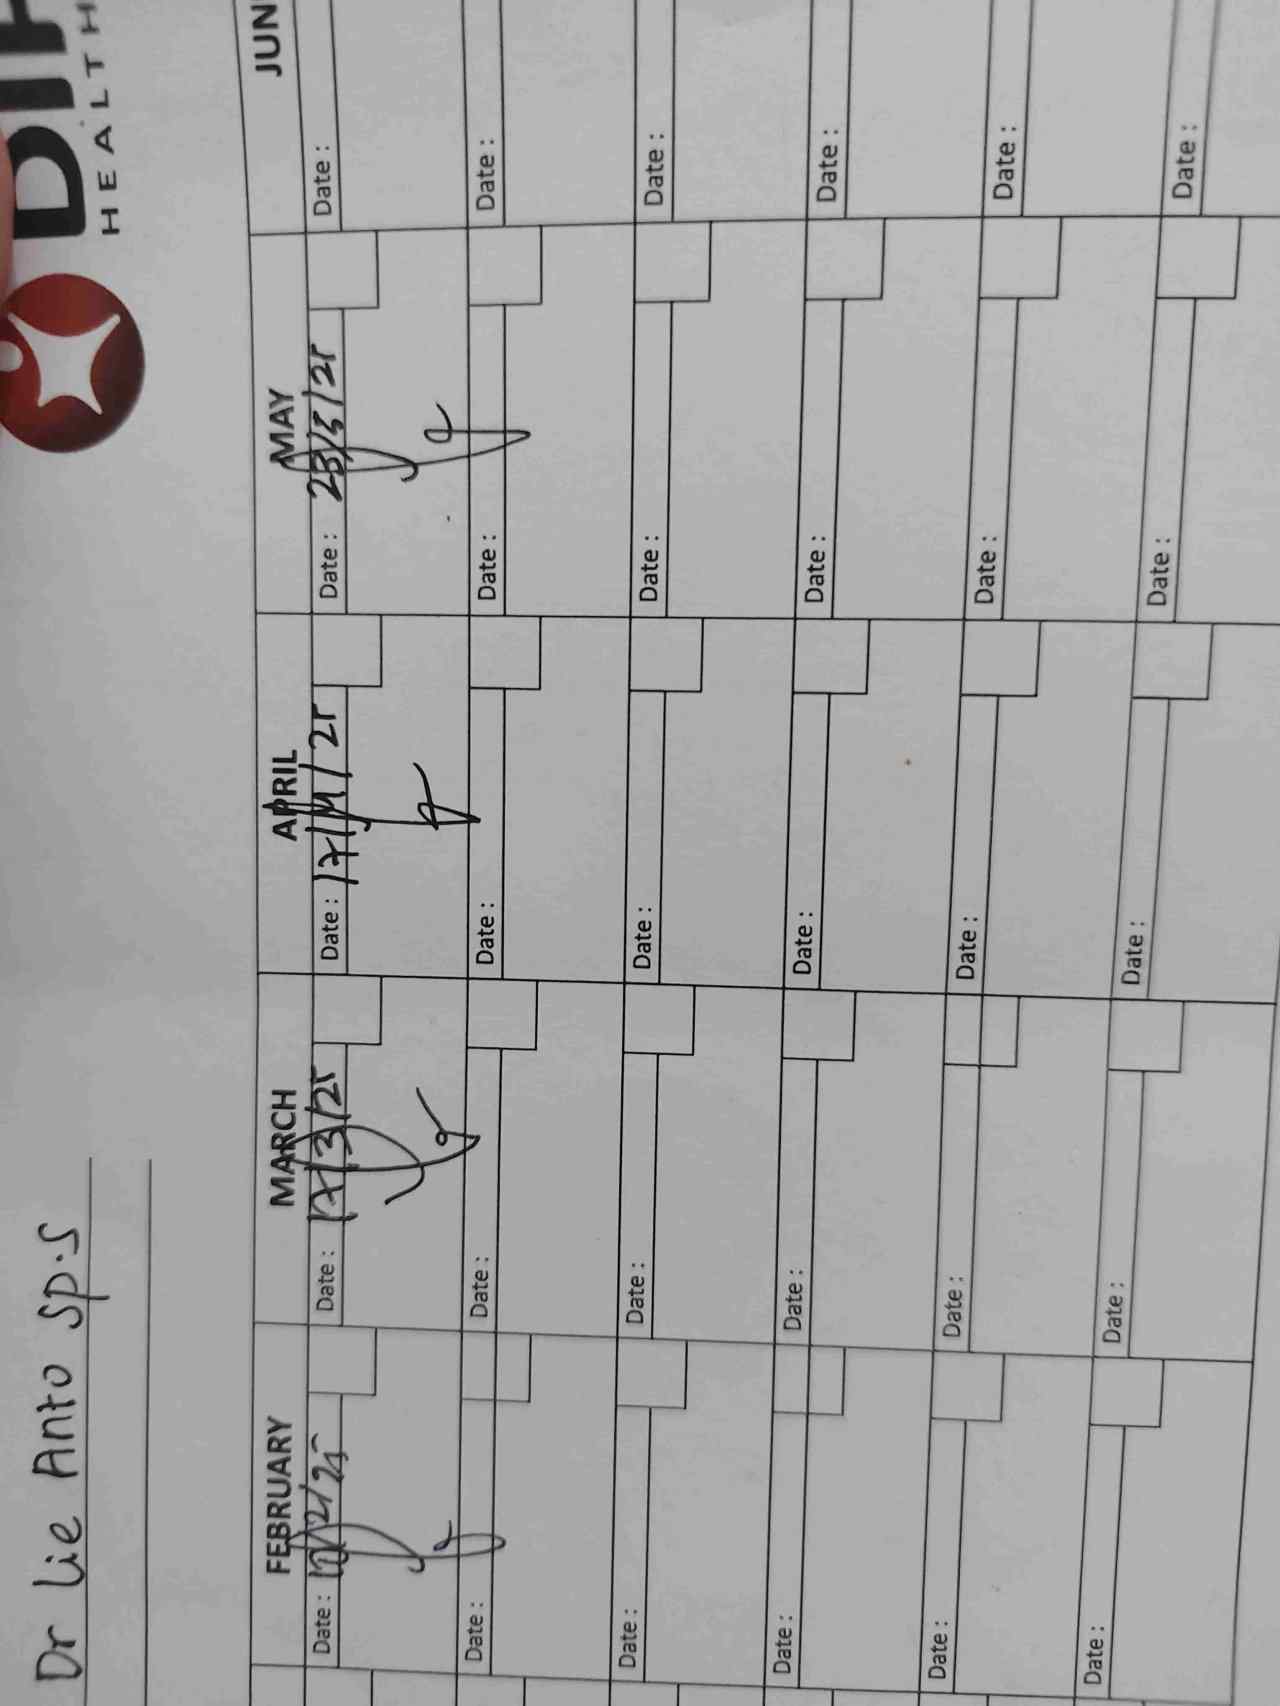 Dr Lie Anto Sp.S
HEALTH
FEBRUARY MARCH APRIL MAY JUN
Date: Date: 17/3/25 Date: 17/4/25 Date: 23/5/25 Date:
Date: Date: Date: Date: Date:
Date: Date: Date: Date: Date:
Date: Date: Date: Date: Date:
Date: Date: Date: Date: Date:
Date: Date: Date: Date: Date: